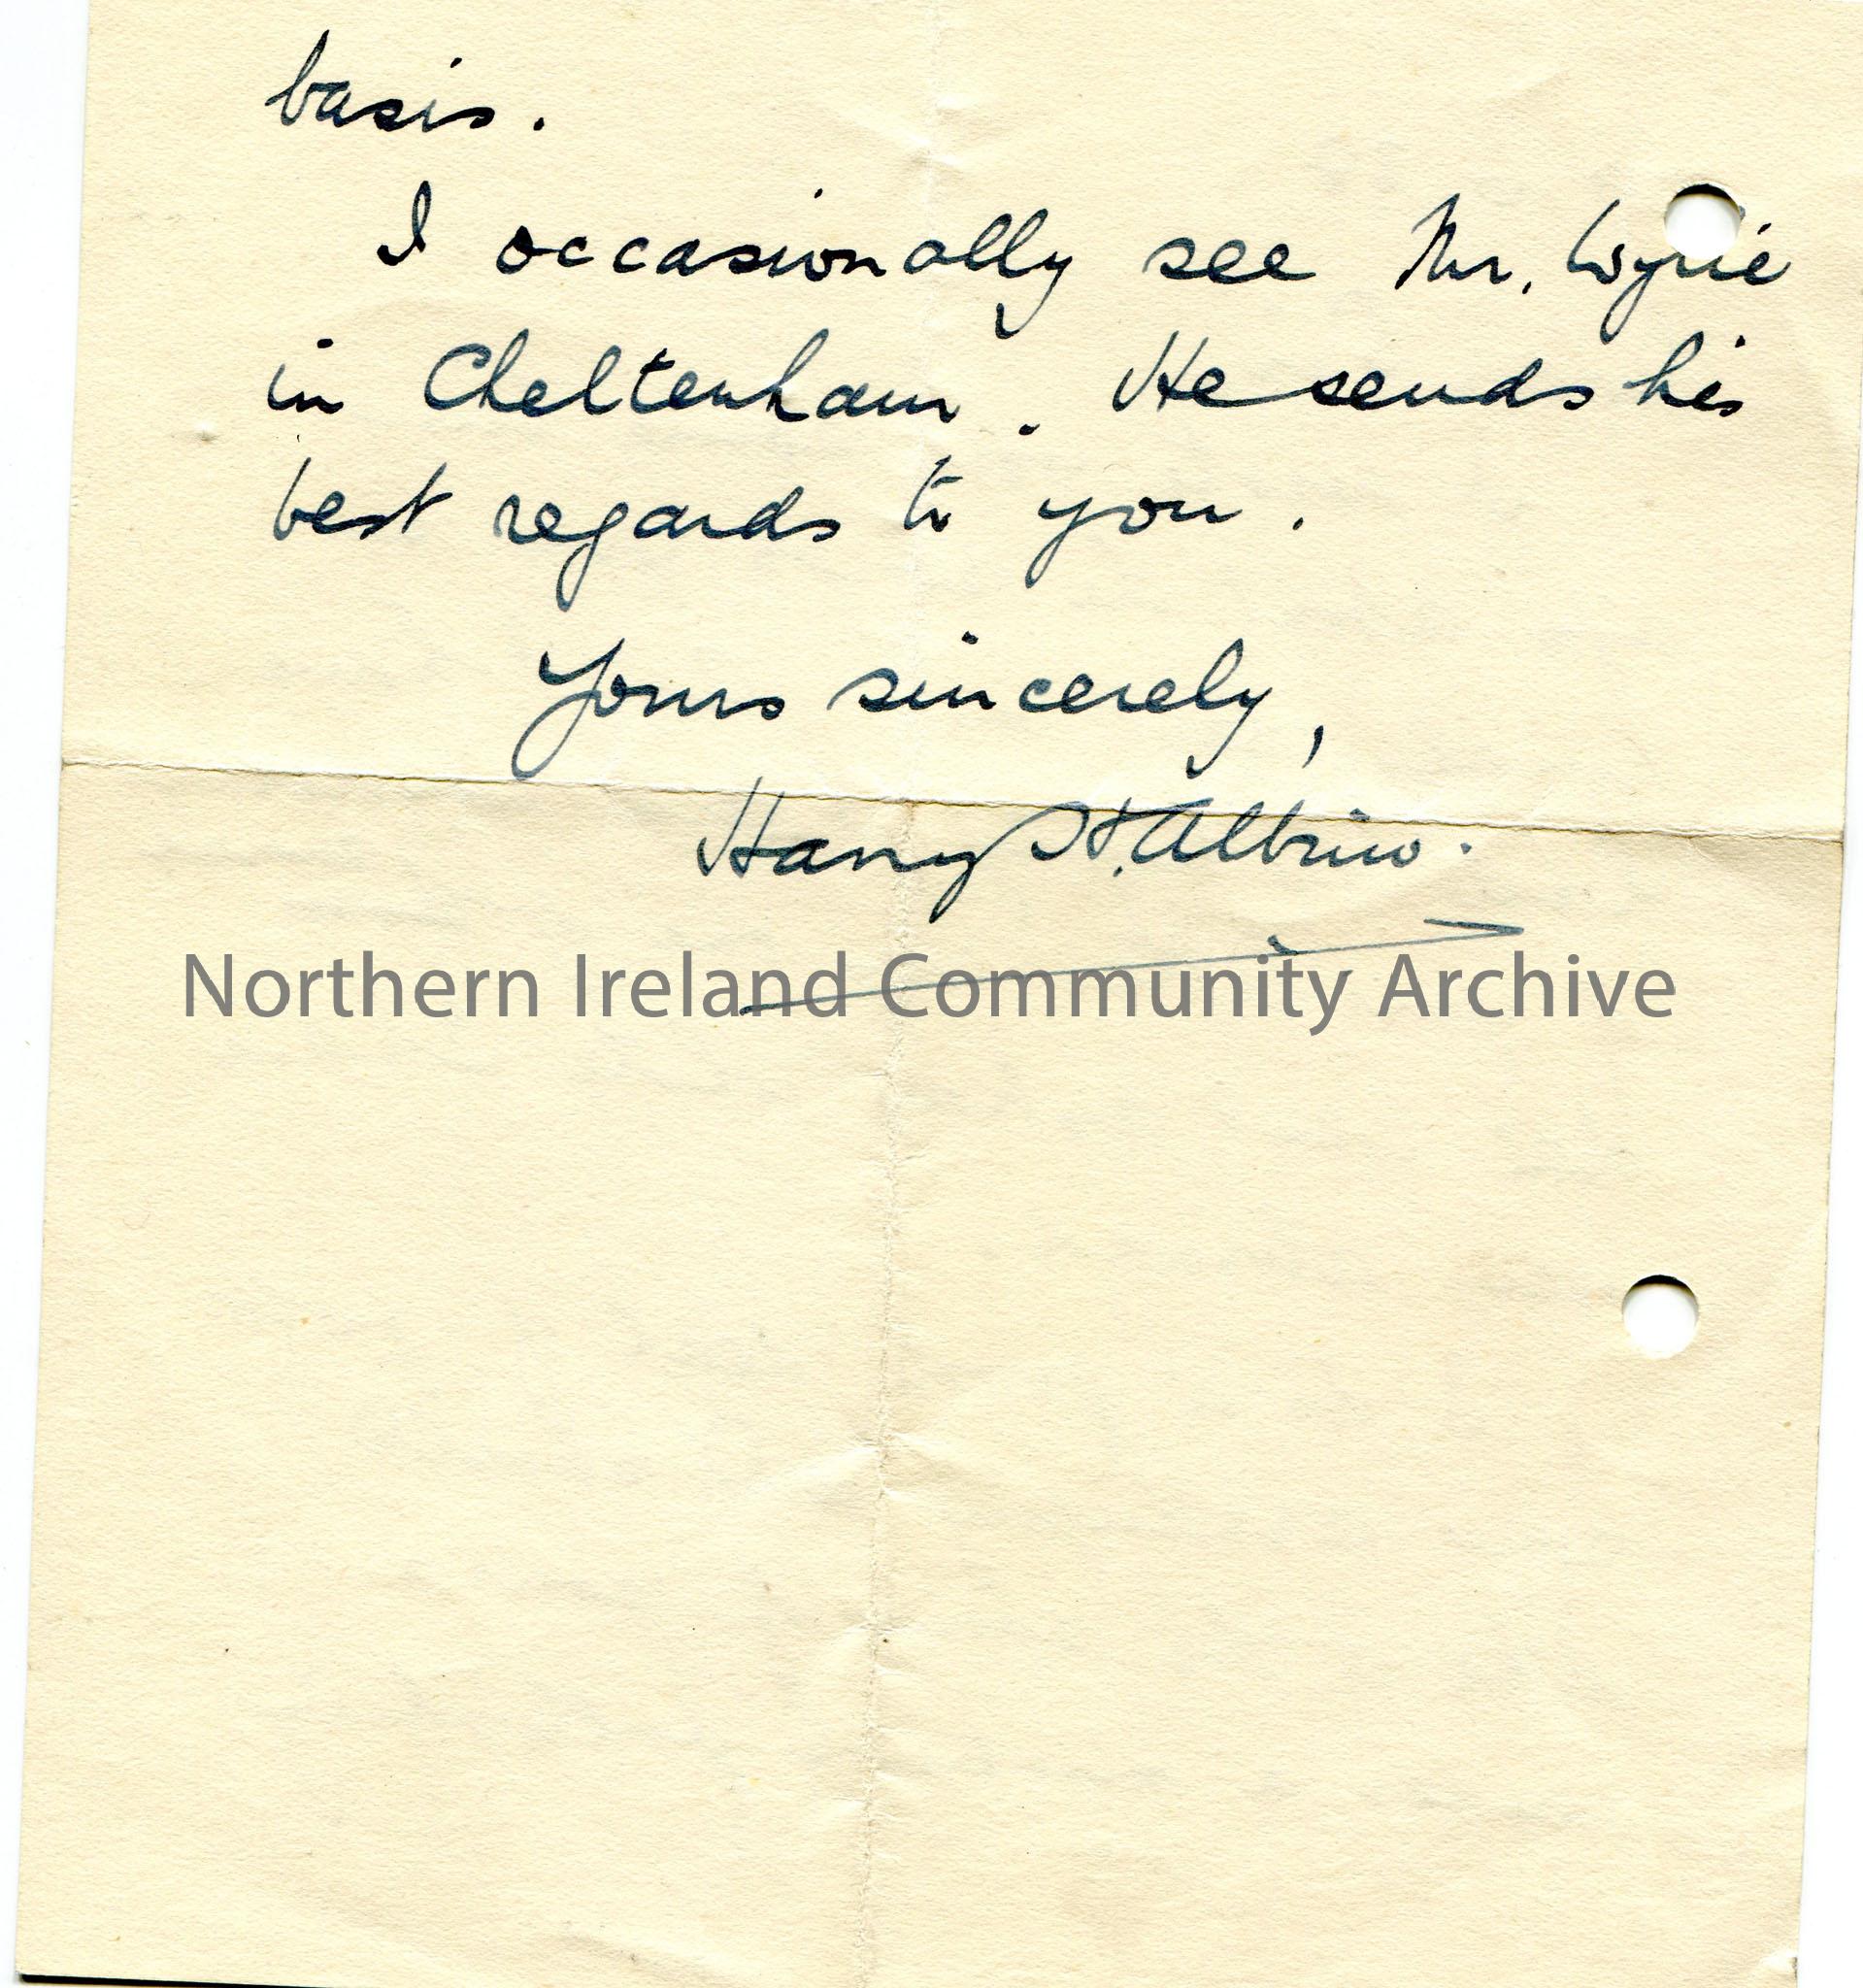 basis.
I occasionally see Mr. Wyrie
in Cheltenham. He sends his
best regards to you.
Yours sincerely,
Harry H. Albino.
Northern Ireland Community Archive